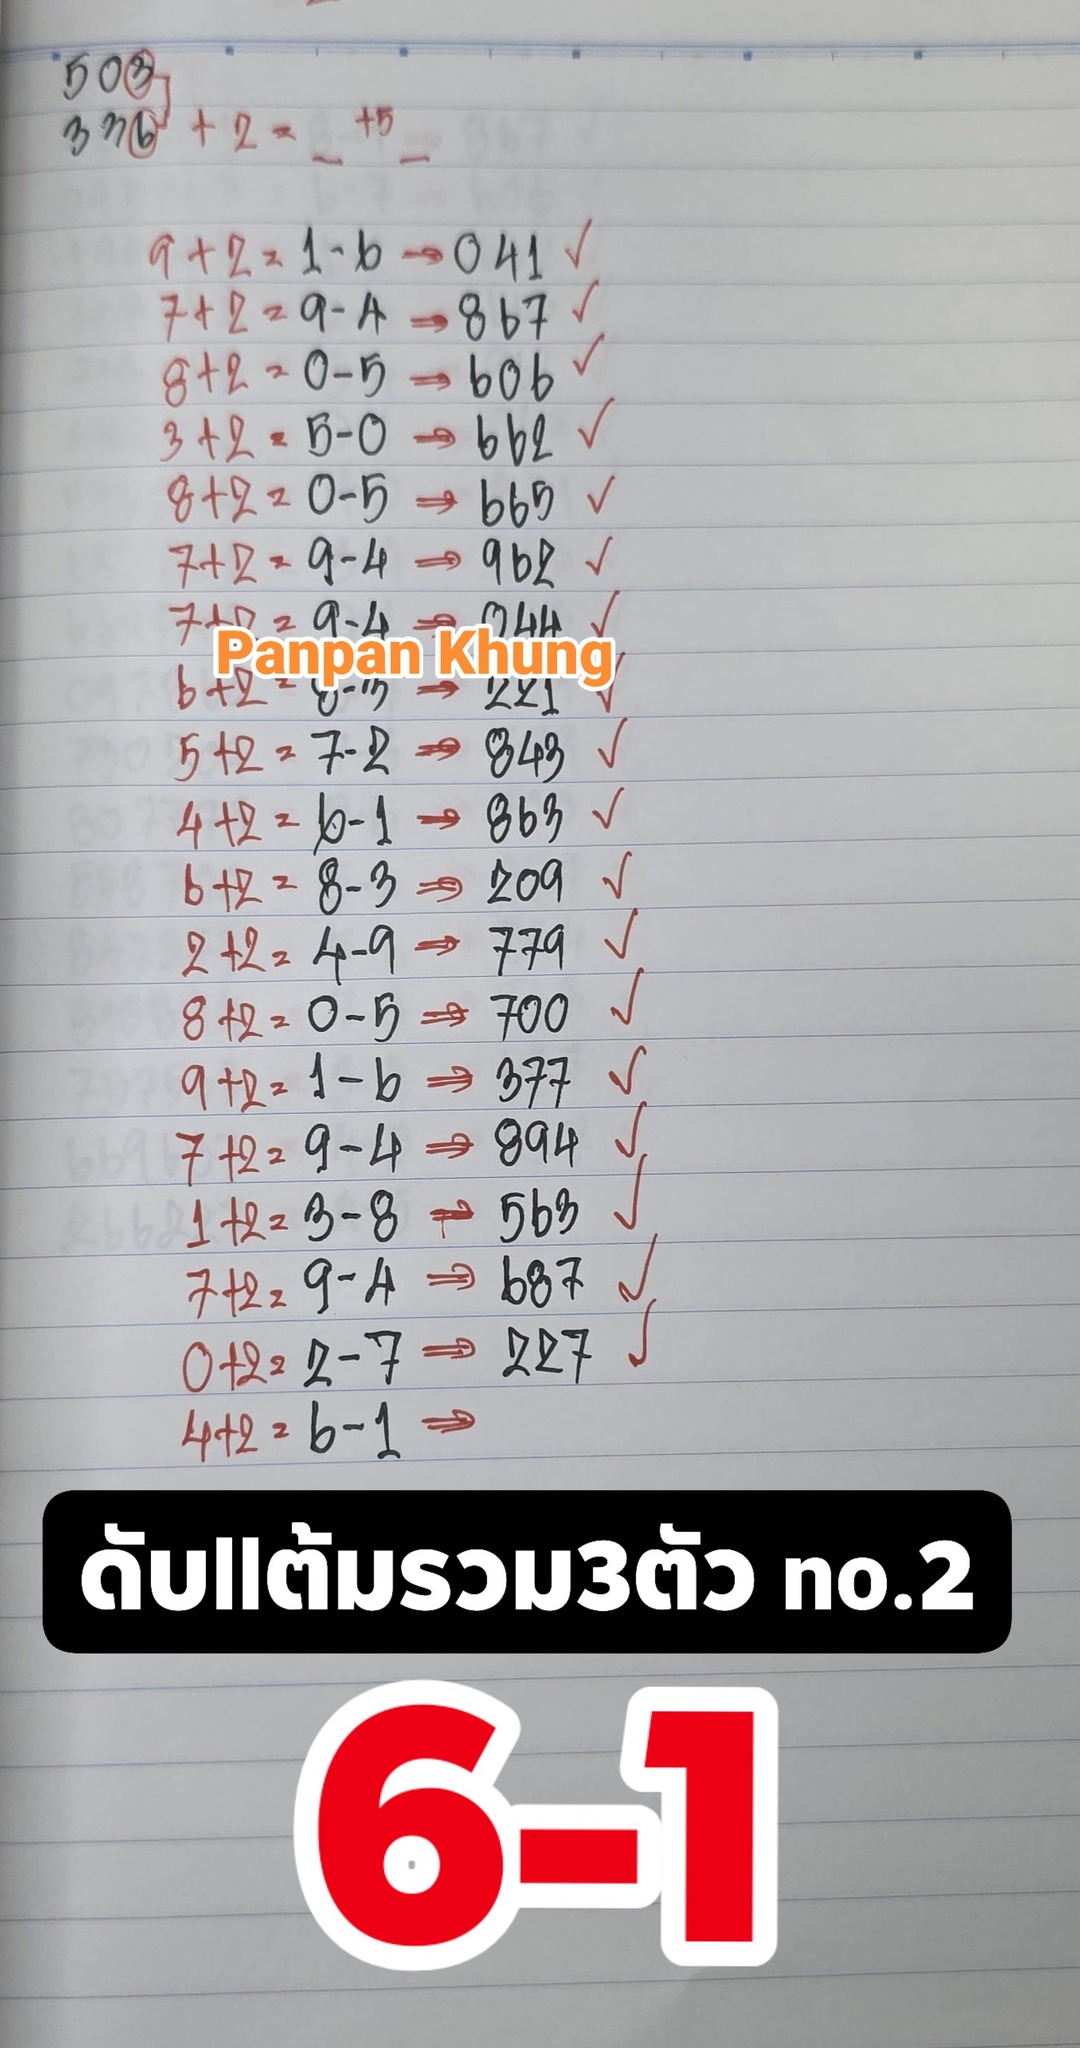 503
336 + 2 = _ +5 _
9+2=1-6→041 ✓
7+2=9-4→867 ✓
8+2=0-5→606 ✓
3+2=5-0→662 ✓
8+2=0-5→665 ✓
7+2=9-4→962 ✓
7+2=9-4→044 ✓
Panpan Khung
6+2=8-3→221 ✓
5+2=7-2→843 ✓
4+2=6-1→863 ✓
6+2=8-3→209 ✓
2+2=4-9→779 ✓
8+2=0-5→700 ✓
9+2=1-6→377 ✓
7+2=9-4→894 ✓
1+2=3-8→563 ✓
7+2=9-4→687 ✓
0+2=2-7→227 ✓
4+2=6-1→
ดับแต้มรวม3ตัว no.2
6-1